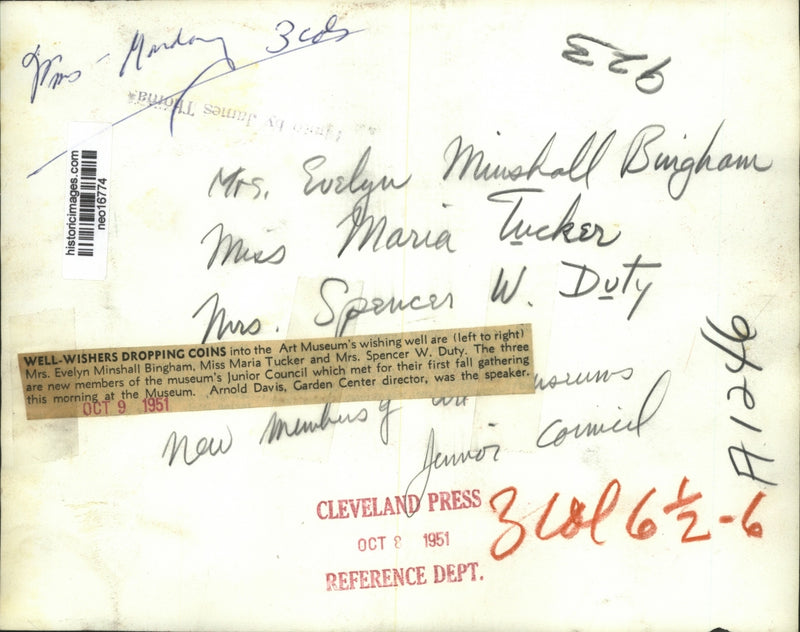 Mrs - Monday 3 cols
923
Photo by James Thomas
historicimages.com
neo16774
Mrs. Evelyn Minshall Bingham
Miss Maria Tucker
Mrs. Spencer W. Duty
WELL-WISHERS DROPPING COINS into the Art Museum's wishing well are (left to right)
Mrs. Evelyn Minshall Bingham, Miss Maria Tucker and Mrs. Spencer W. Duty. The three
are new members of the museum's Junior Council which met for their first fall gathering
this morning at the Museum. Arnold Davis, Garden Center director, was the speaker.
OCT 9 1951
New members of art museums
Junior Council
A1246
CLEVELAND PRESS
OCT 8 1951
REFERENCE DEPT.
3 col 6 1/2 - 6